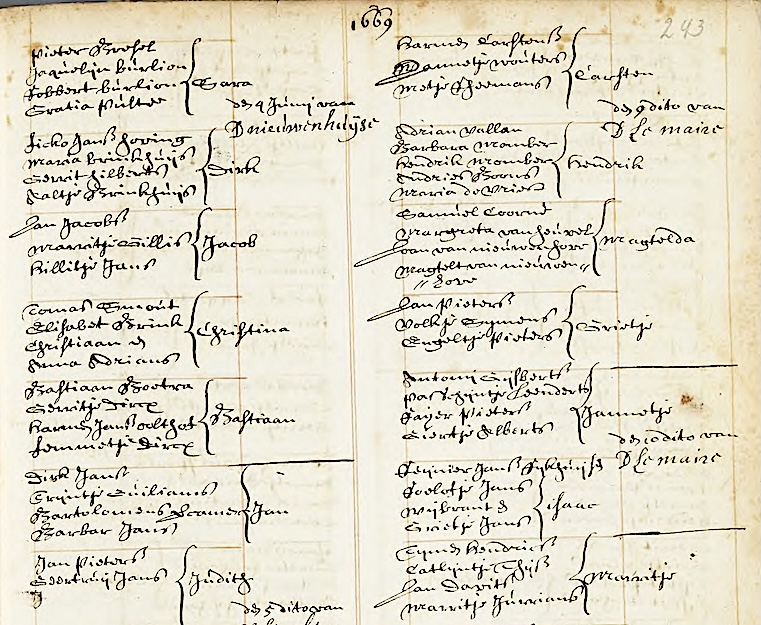 1669
243
Pieter
Jaquelijn Burlion
Jobbert Burlion
Gratia Pultee
Sara
den 4 Junij van
D nieuwenhuijse
Jicko Janss
Maria Brinkhuijs
Gerrit hilberts
Aaltje Brinkhuijs
Dirk
Jan Jacobs
Marritje Gillis
Hillitje Jans
Jacob
Tomas Smout
Elisabet Brink
Christiaan
Anna Adrians
Christina
Bastiaan Boetra
Gerritje Dircx
Harmen Janss
Jemmetje Dircx
Bastiaan
Dirk Janss
Trijntje Guiliams
Bartolomeus
Barbar Jans
Jan
Jan Pieterss
Geertruij Jans
Judith
den 5 dito van
Harmen Carstenss
Wouters
Metje
Carsten
den 9 dito van
D Le maire
Adrian Vallan
Barbara Momber
Hendrik Momber
Andries Boons
Maria de Vries
Hendrik
Samuel Coorne
Margreta van heuvel
Joan van nieuwenhove
Magtelt van nieuwen
hove
Magtelda
Jan Pieterss
Volkje Sijmens
Engeltje Pieters
Grietje
Antonij Gijsbertss
Leenderts
Pieterss
Giertje Alberts
Jannetje
den 10 dito van
D Le maire
Reijnier Janss
Roelofje Jans
Wijbrant
Grietje Jans
isaac
Sijmen Hendrixs
Catlijntje Thijss
Jan Davits
Marritje Jurrians
Marritje